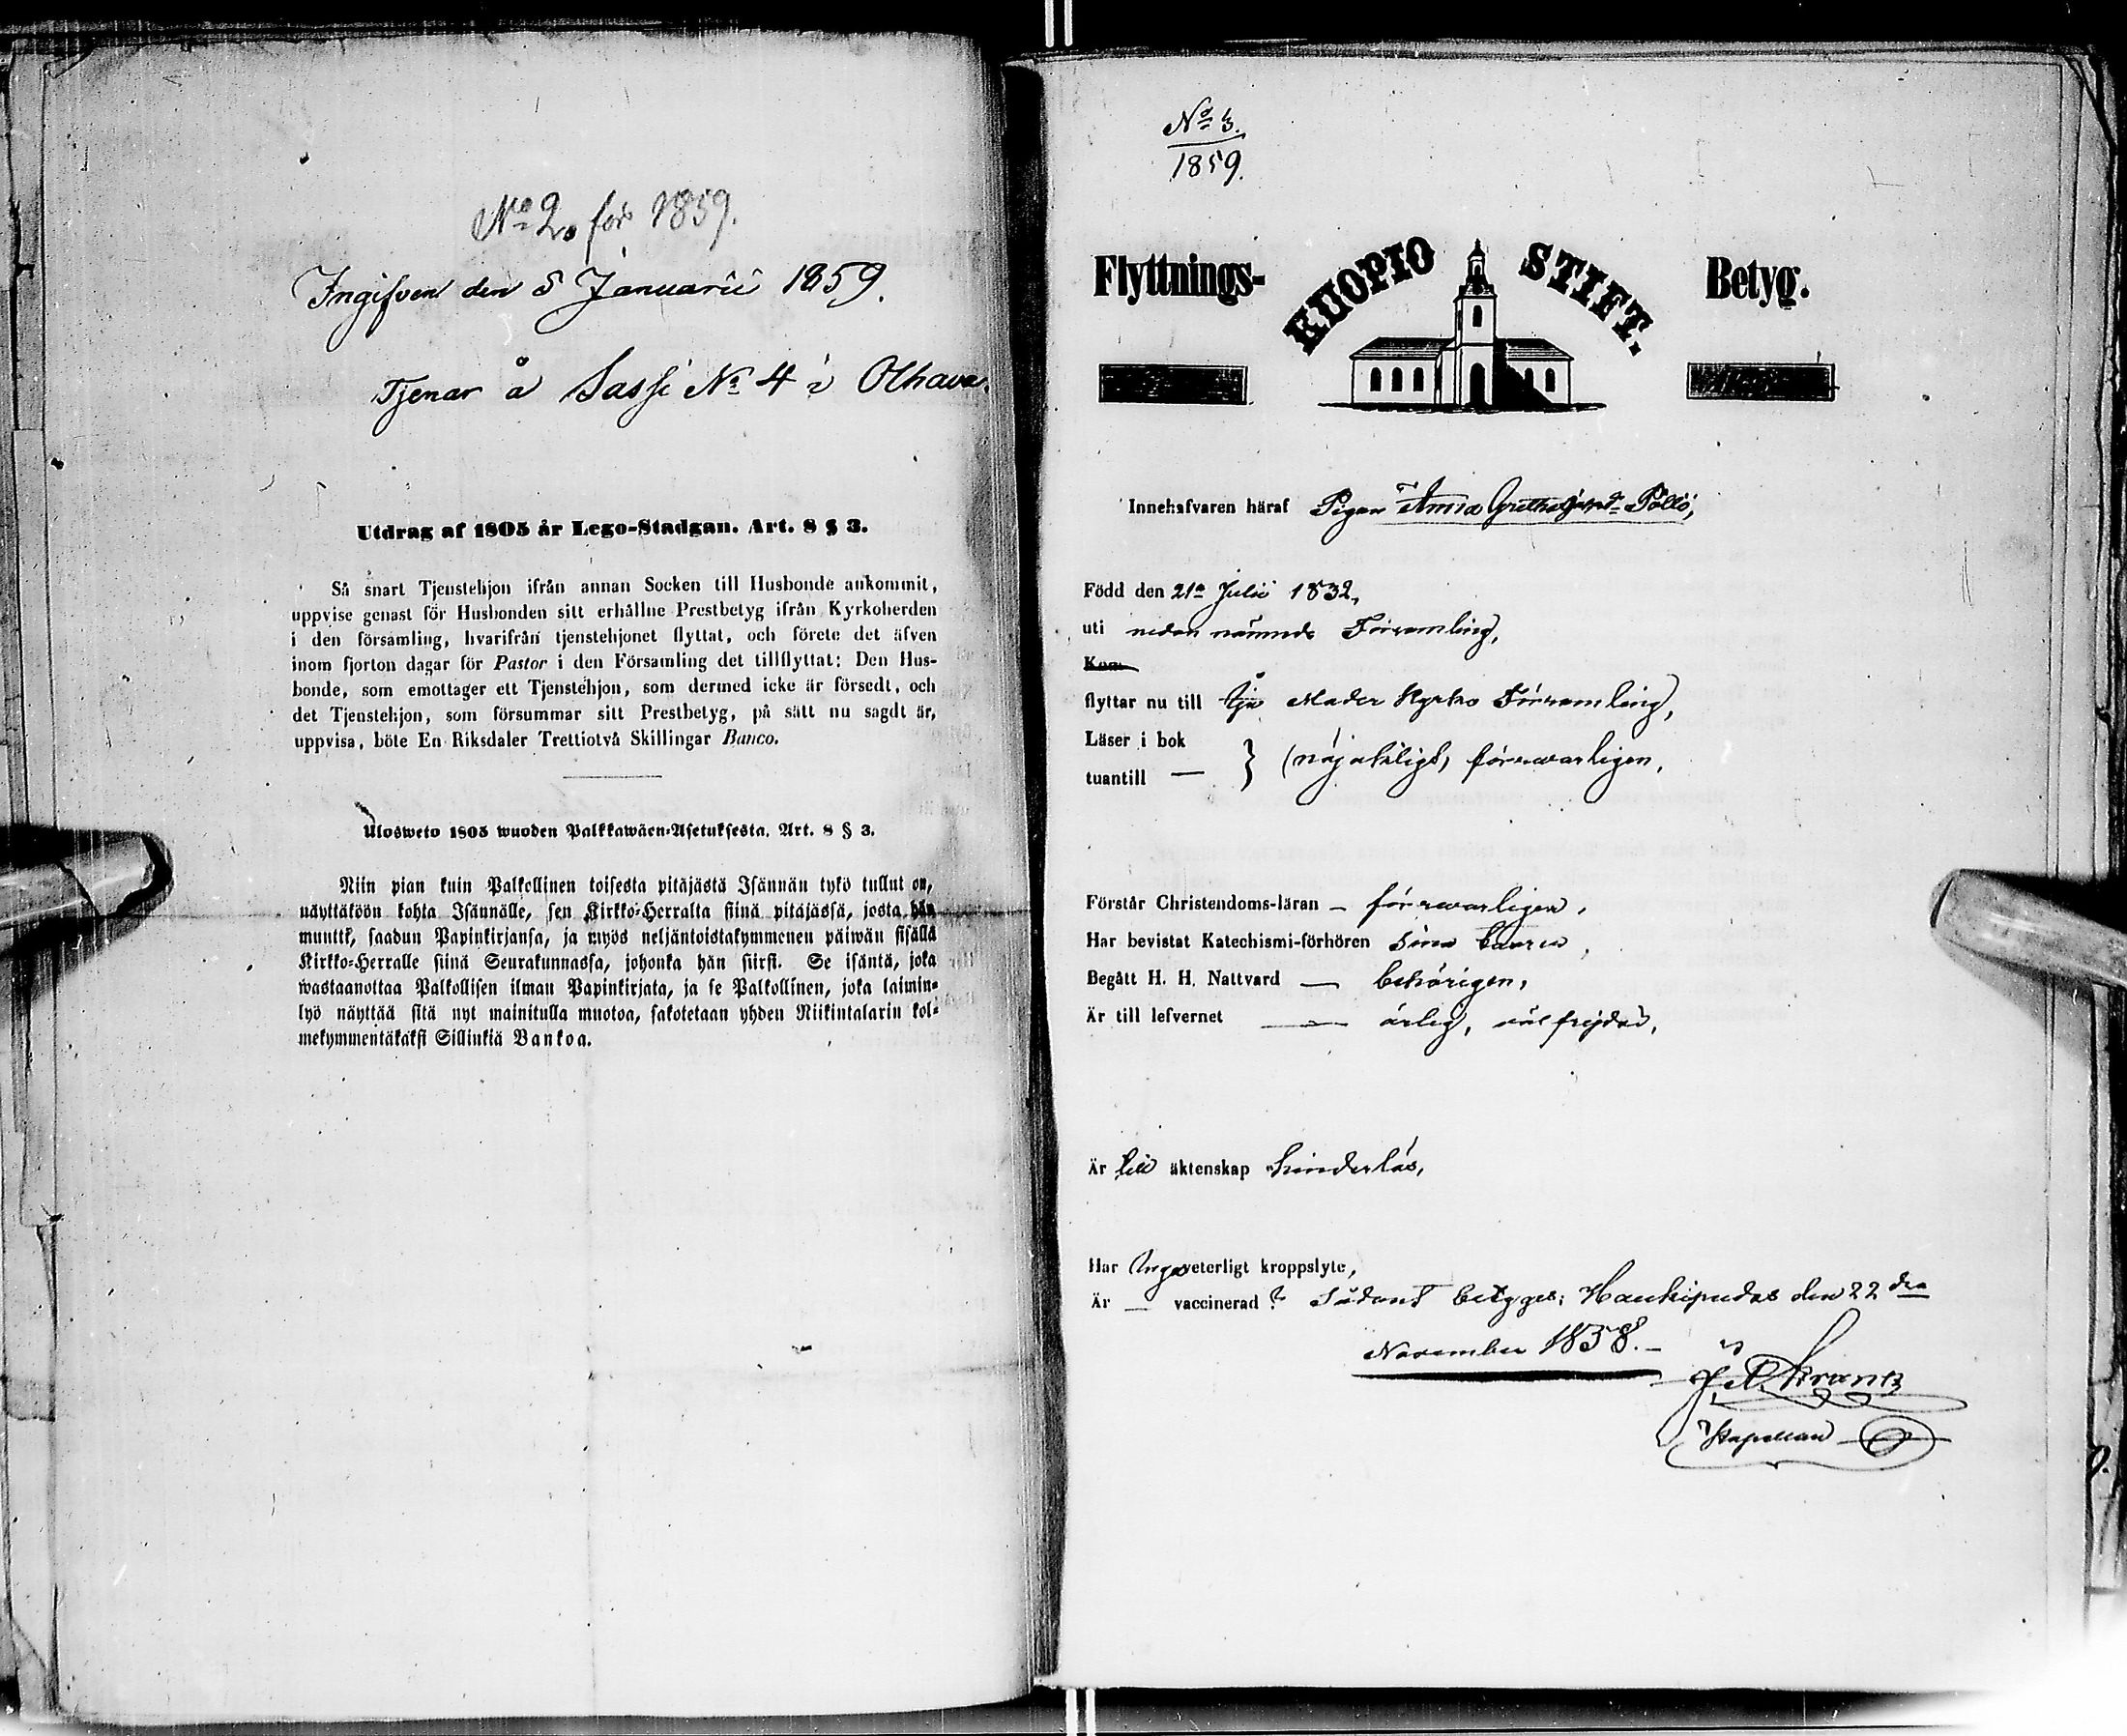 No 2. för 1859.
Ingifven den 8 Januarii 1859.
Tjenar å Sassi No 4 i Olhava.
Utdrag af 1805 år Lego-Stadgan. Art. 8 § 3.
Så snart Tjenstehjon ifrån annan Socken till Husbonde ankommit,
uppvise genast för Husbonden sitt erhållne Prestbetyg ifrån Kyrkoherden
i den församling, hvarifrån tjenstehjonet flyttat, och förete det äfven
inom fjorton dagar för Pastor i den Församling det tillflyttat: Den Hus-
bonde, som emottager ett Tjenstehjon, som dermed icke är försedt, och
det Tjenstehjon, som försummar sitt Prestbetyg, på sätt nu sagdt är,
uppvisa, böte En Riksdaler Trettiotvå Skillingar Banco.
Ulosweto 1805 wuoden Palkkawäen-Asetuksesta. Art. 8 § 3.
Niin pian kuin Palkollinen toisesta pitäjästä Isännän tykö tullut on,
näyttäköön kohta Isännälle, sen Kirkko-Herralta siinä pitäjässä, josta hän
muutti, saadun Papinkirjansa, ja myös neljäntoistakymmenen päiwän sisällä
Kirkko-Herralle siinä Seurakunnassa, johonka hän siirsi. Se isäntä, joka
wastaanottaa Palkollisen ilman Papinkirjata, ja se Palkollinen, joka laimin-
lyö näyttää sitä nyt mainitulla muotoa, sakotetaan yhden Riikintalarin kol-
mekymmentäkaksi Sillinkiä Bankoa.
No 3.
1859.
Flyttnings- KUOPIO STIFT. Betyg.
Innehafvaren häraf Pigan Anna Gretha Pöllö,
Född den 21a Julii 1832,
uti nedan nämnde Församling,
Kom
flyttar nu till Ijo Moder Kyrko Församling,
Läser i bok
tuantill — } (nöjaktligt) försvarligen,
Förstår Christendoms-läran — försvarligen,
Har bevistat Katechismi-förhören sina
Begått H. H. Nattvard — behörigen,
Är till lefvernet — ärlig, väl frejdad,
Är till äktenskap hinderlös,
Har Inga veterligt kroppslyte,
Är — vaccinerad? Sådant betyges; Haukipudas den 22dra
November 1858.—
Krank
Kapellan